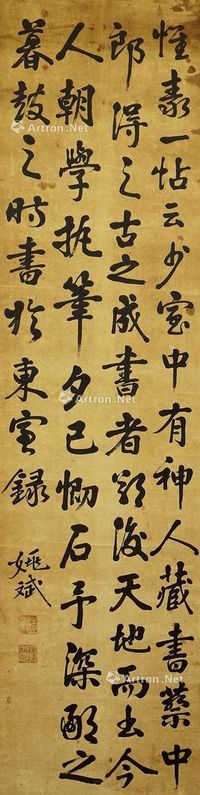 怪素一帖云少室中有神人藏書蔡中
郎得之古之成書者欲後天地而出今
人朝學執筆夕已勒石予深鄙之
暮鼓之時書於東宣錄
姚斌
Artron.Net
Artron.Net
Artron.Net
Artron.Net
Artron.Net
Artron.Net